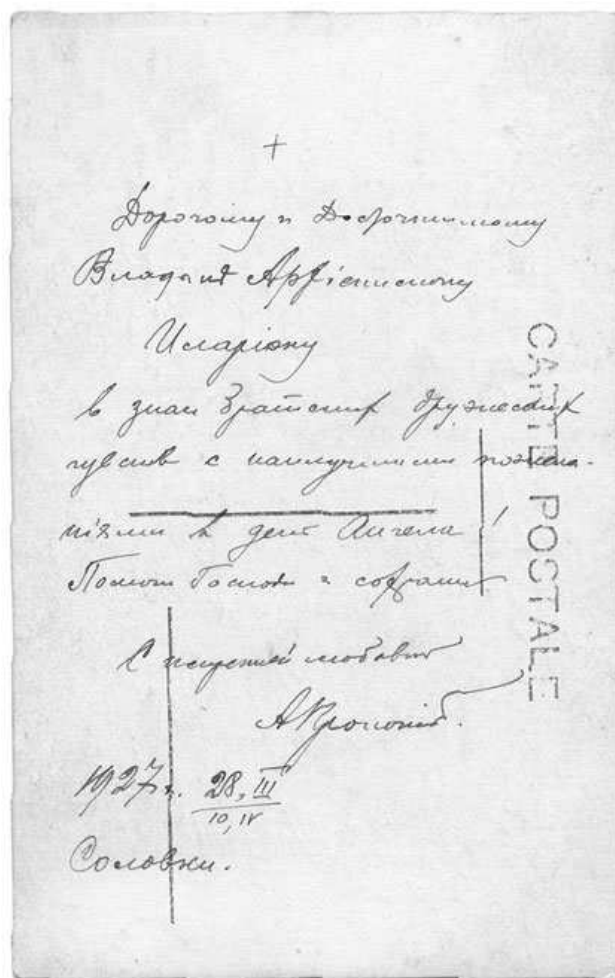 +
Дорогому и Досточтимому
Владыкѣ Архіепископу
Иларіону
в знак братских дружеских
чувств с наилучшими пожела-
ніями в день Ангела!
Помоги Господи и сохрани
С искренней любовью
А Прокопій.
1927 г. 28, III
10, IV
Соловки.
CARTE POSTALE